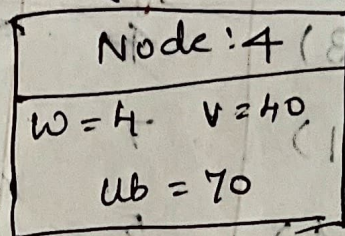 Node : 4
W = 4. V = 40
Ub = 70